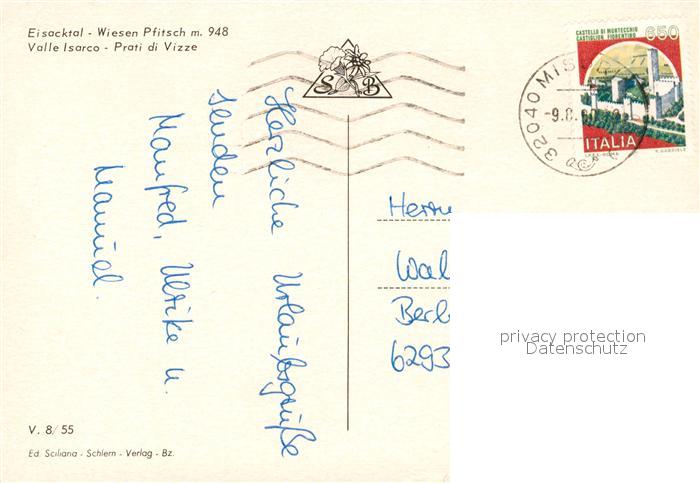 Eisacktal - Wiesen Pfitsch m. 948
Valle Isarco - Prati di Vizze
S B
CASTELLO DI MONTECCHIO
CASTIGLION FIORENTINO
650
ITALIA
32040 MIS
-9.8.
Herzliche Urlaubsgrüße
senden
Manfred, Ulrike u.
Manuel.
Herrn
Wal
Berl
6293
privacy protection
Datenschutz
V. 8/55
Ed. Sciliana - Schlern - Verlag - Bz.